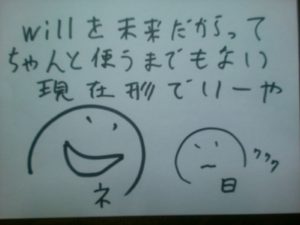 willを未来だからって
ちゃんと使うまでもない
現在形でいーや
ネ
日
ククク